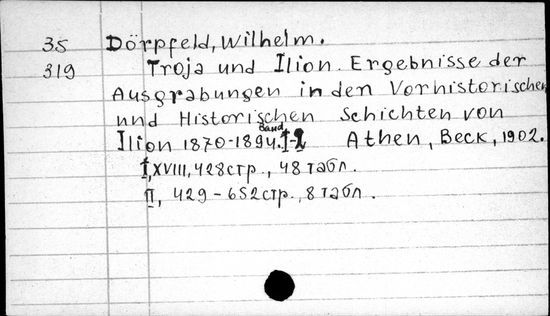 35 Dörpfeld, Wilhelm.
319 Troja und Ilion. Ergebnisse der
Ausgrabungen in den Vorhistorischen
und Historischen Schichten von
Ilion 1870-1894. Band I-2 Athen, Beck, 1902.
I, XVIII, 428 стр., 48 табл.
II, 429-652 стр., 8 табл.